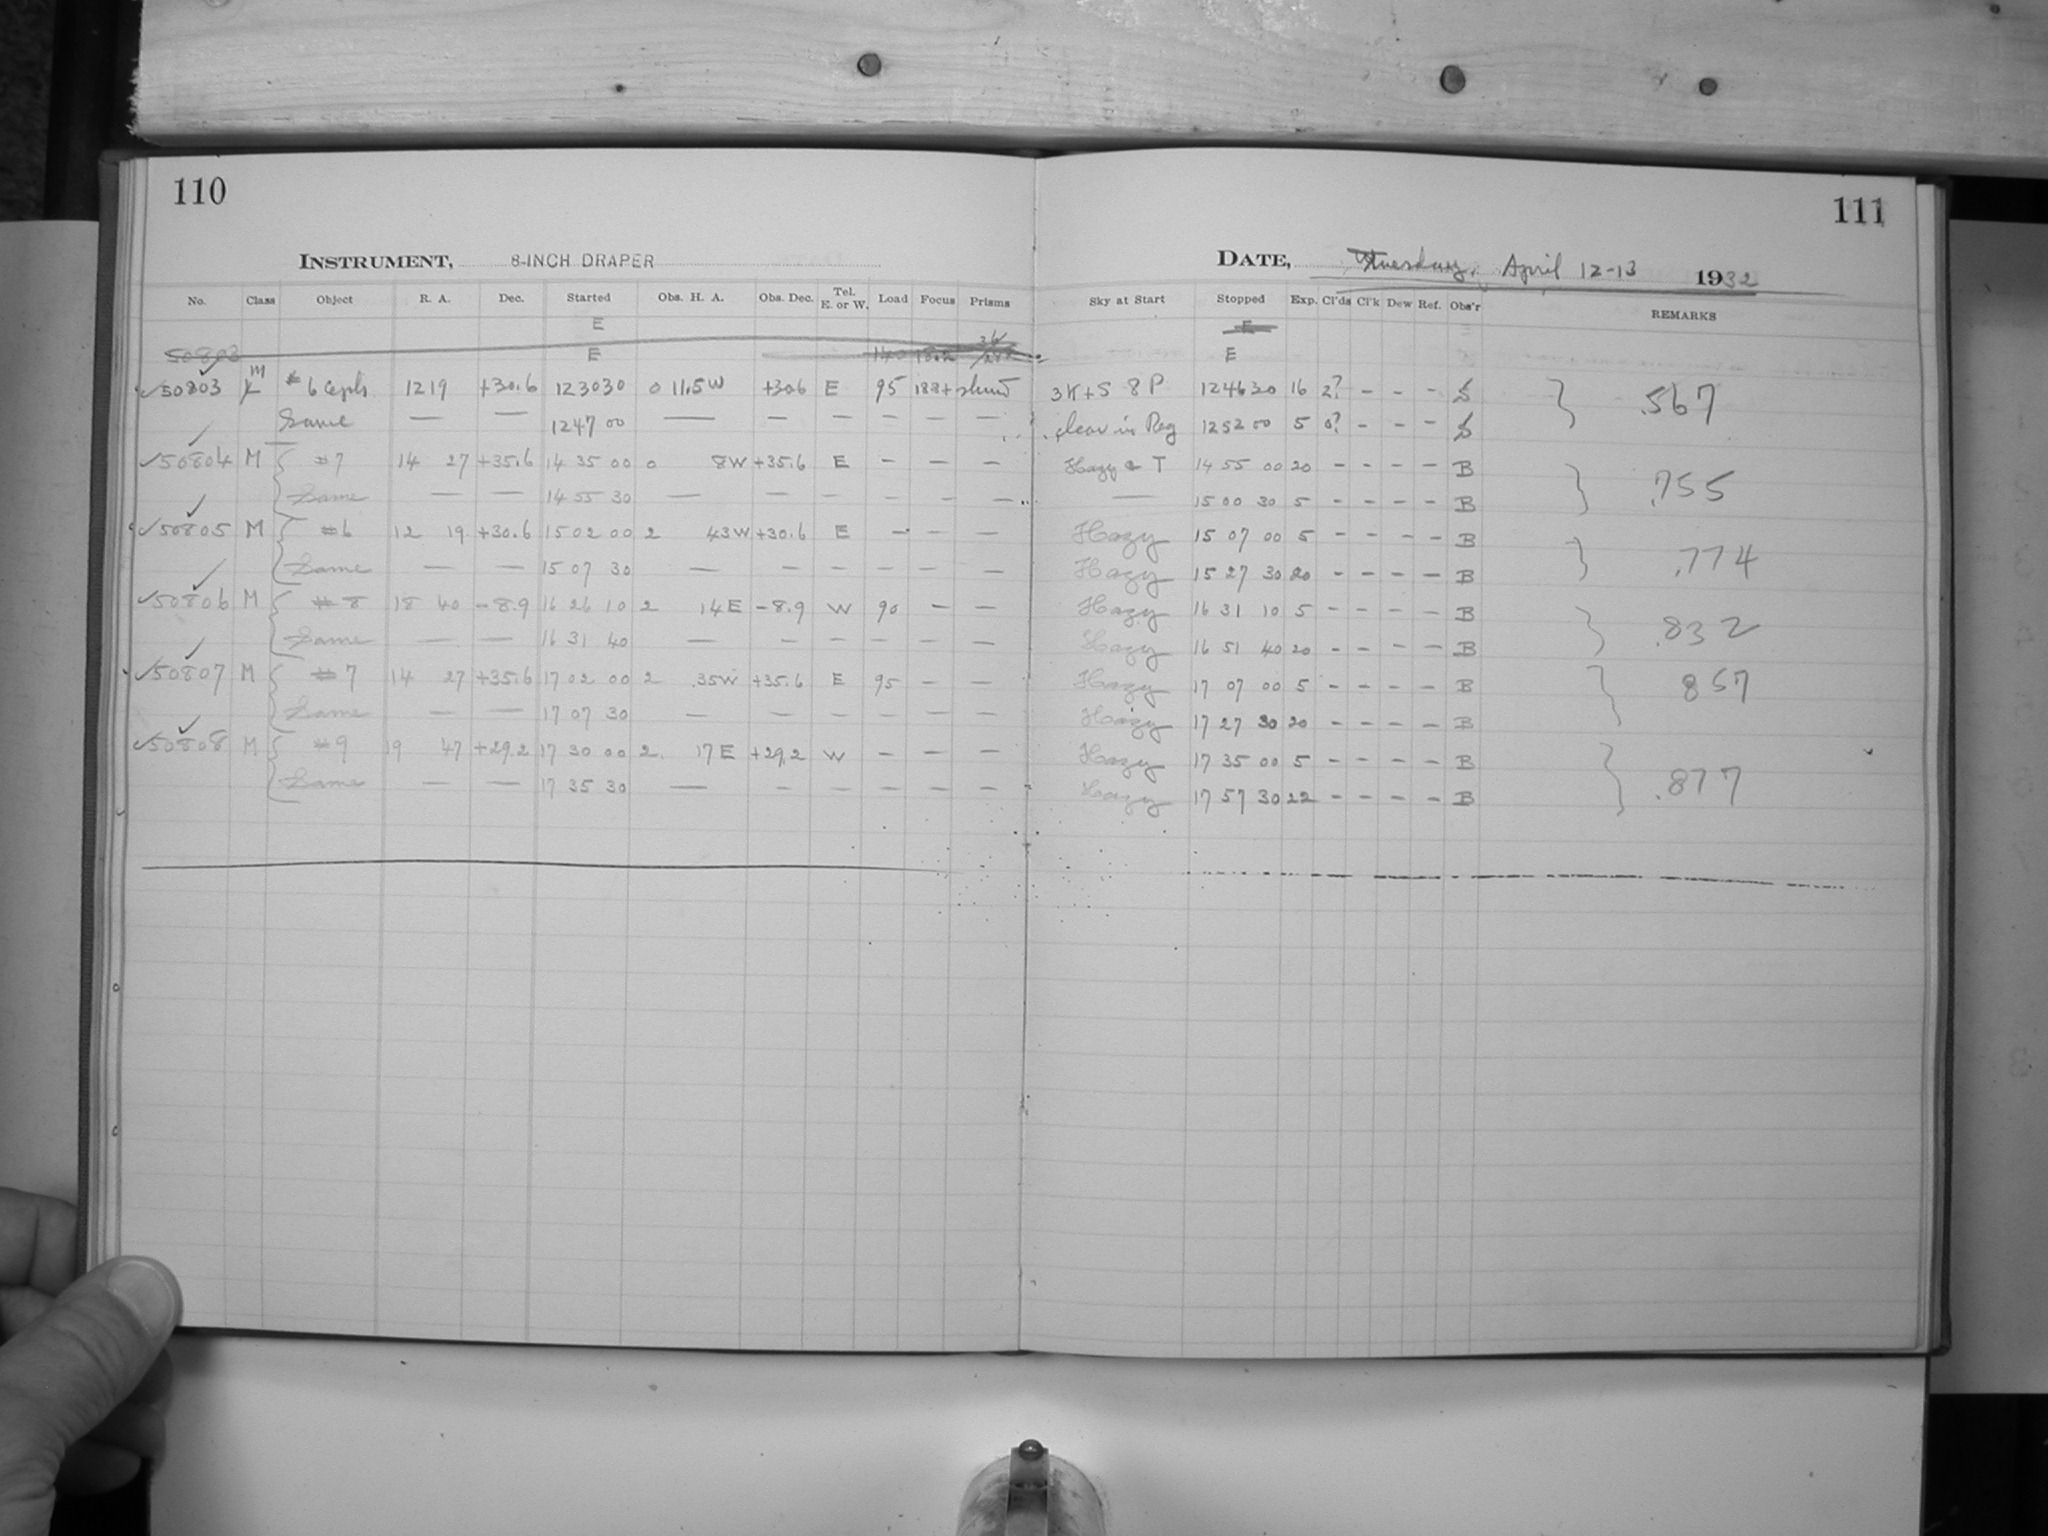 110
INSTRUMENT, 8-INCH DRAPER
No. Class Object R. A. Dec. Started Obs. H. A. Obs. Dec. Tel. E. or W. Load Focus Prisms
E
50803 E 140
50803 M # 6 Ceph 12 19 +30.6 12 30 30 0 11.5 W +30.6 E 95
Same — — 12 47 00 — — — — — —
50804 M #7 14 27 +35.6 14 35 00 0 8W +35.6 E — — —
Same — — 14 55 30 — — — — — —
50805 M #6 12 19 +30.6 15 02 00 2 43W +30.6 E — — —
Same — — 15 07 30 — — — — — —
50806 M #8 18 40 -8.9 16 26 10 2 14E -8.9 W 90 — —
Same — — 16 31 40 — — — — — —
50807 M #7 14 27 +35.6 17 02 00 2 35W +35.6 E 95 — —
Same — — 17 07 30 — — — — — —
50808 M #9 19 47 +29.2 17 30 00 2 17E +29.2 W — — —
Same — — 17 35 30 — — — — — —
111
DATE, Tuesday, April 12-13 1932
Sky at Start Stopped Exp. Cl'ds Cl'k Dew Ref. Obs'r REMARKS
E
E
3K+S 8P 12 46 30 16 2? - - - S } .567
clear in Reg 12 52 00 5 0? - - - S
Hazy & T 14 55 00 20 - - - - B } .755
— 15 00 30 5 - - - - B
Hazy 15 07 00 5 - - - - B } .774
Hazy 15 27 30 20 - - - - B
Hazy 16 31 10 5 - - - - B } .832
Hazy 16 51 40 20 - - - - B
Hazy 17 07 00 5 - - - - B } 857
Hazy 17 27 30 20 - - - - B
Hazy 17 35 00 5 - - - - B } .877
Hazy 17 57 30 22 - - - - B